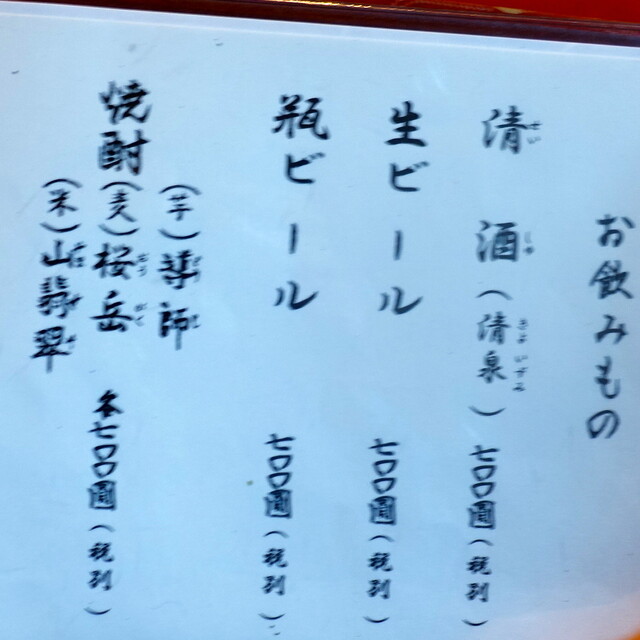 お飲みもの
清酒(清泉) 七〇〇圓(税別)
生ビール 七〇〇圓(税別)
瓶ビール 七〇〇圓(税別)
焼酎
(芋)導師
(麦)桜岳 各七〇〇圓(税別)
(米)山翡翠